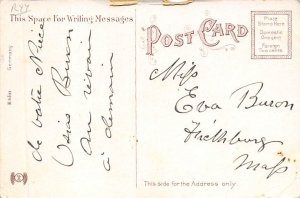 This Space For Writing Messages
de votre Nièce
Usias Buron
Au revoir
à demain
Germany
POST CARD
Place
Stamp Here
Domestic
One cent
Foreign
Two cents
Miss
Eva Buron
Fitchburg
Mass
This side for the Address only.